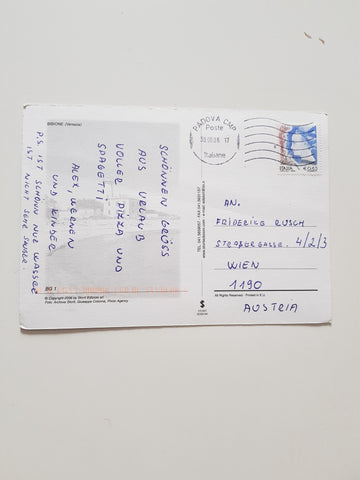 BIBIONE (Venezia)
SCHÖNNEN GRÜSS
AUS URLAUB
VOLLER PIZZA UND
SPAGETTI
ALEX, WERNER
UND KINDER
P.S. IST SCHÖNN NUR WASSER
IST NICHT SEHR SAUBER.
BG 1
© Copyright 2006 by Storti Edizioni srl
Foto: Andrea Storti, Giuseppe Colonna, Photo Agency
PADOVA CMP
Poste
Italiane
ITALIA
AN.
FRIDERIKE RUSCH
4/2/3
WIEN
1190
AUSTRIA
All Rights Reserved - Printed in E.U.
S